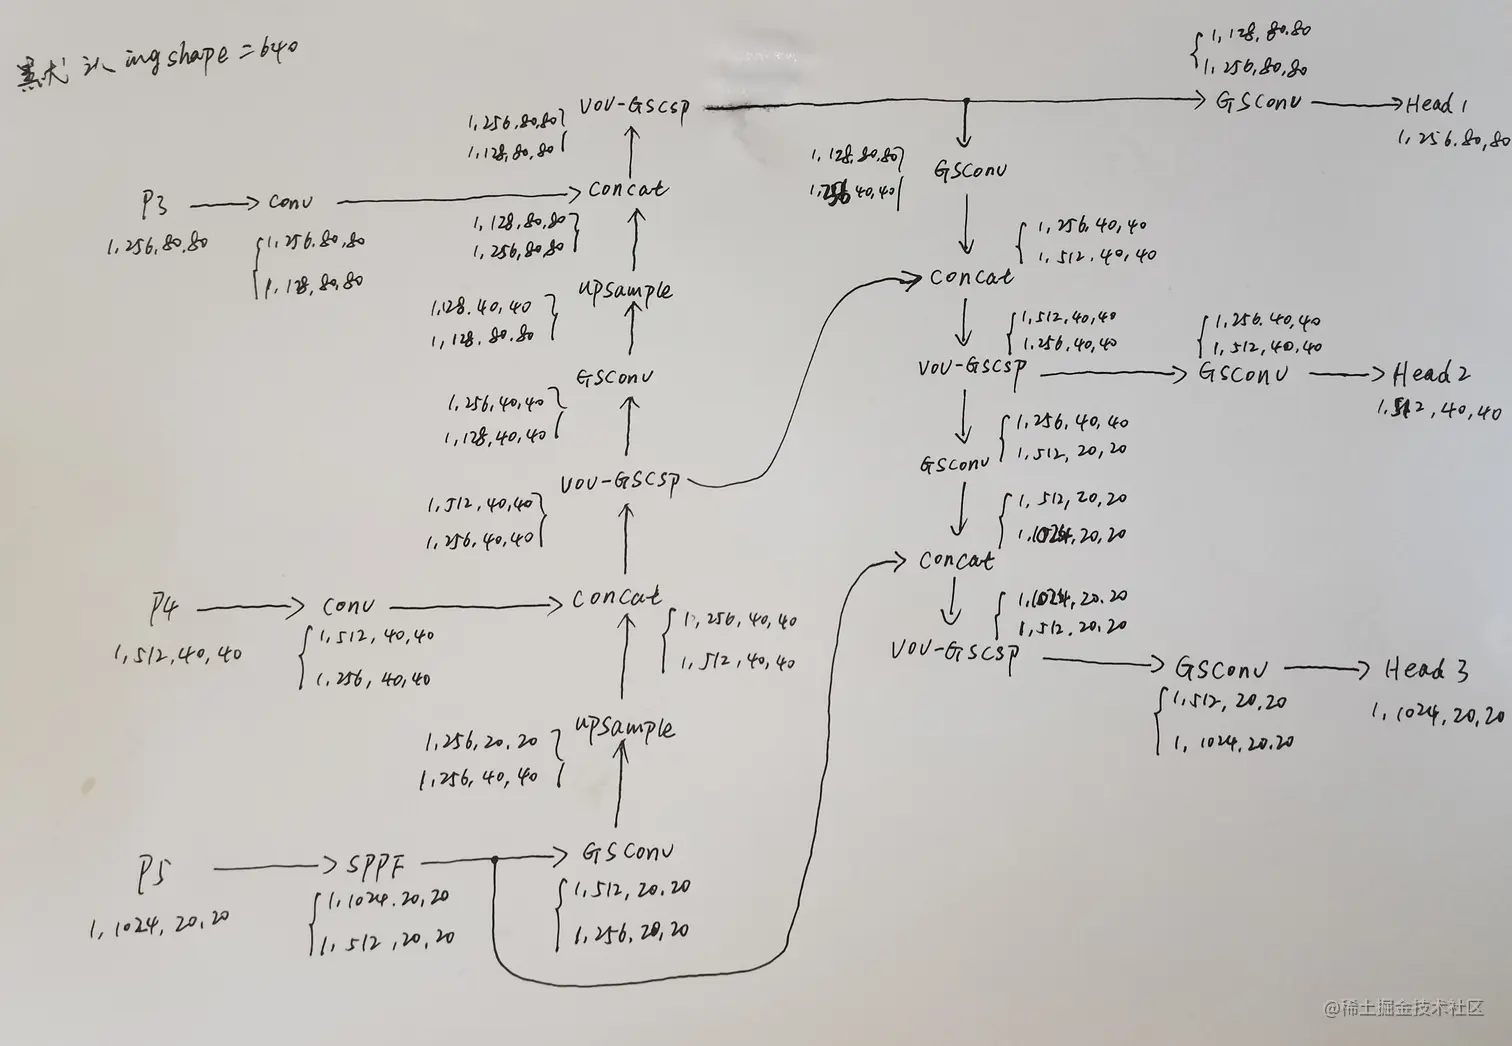 默认 imgshape=640
1,128,80,80
1,256,80,80
VOV-GSCSP
GSConv
Head 1
1,256,80,80
1,256,80,80
1,128,80,80
1,128,80,80
1,256,40,40
GSConv
P3
Conv
Concat
1,256,80,80
1,256,80,80
1,128,80,80
1,128,80,80
1,256,80,80
1,256,40,40
1,512,40,40
Concat
upsample
1,128,40,40
1,128,80,80
1,512,40,40
1,256,40,40
1,256,40,40
1,512,40,40
VOV-GSCSP
GSConv
Head 2
1,512,40,40
GSConv
1,256,40,40
1,128,40,40
1,256,40,40
1,512,20,20
GSConv
VOV-GSCSP
1,512,40,40
1,256,40,40
1,512,20,20
1,1024,20,20
Concat
P4
Conv
Concat
1,512,40,40
1,512,40,40
1,256,40,40
1,256,40,40
1,512,40,40
1,1024,20,20
1,512,20,20
VOV-GSCSP
GSConv
Head 3
1,512,20,20
1,1024,20,20
1,1024,20,20
upsample
1,256,20,20
1,256,40,40
P5
SPPF
GSConv
1,1024,20,20
1,1024,20,20
1,512,20,20
1,512,20,20
1,256,20,20
@稀土掘金技术社区